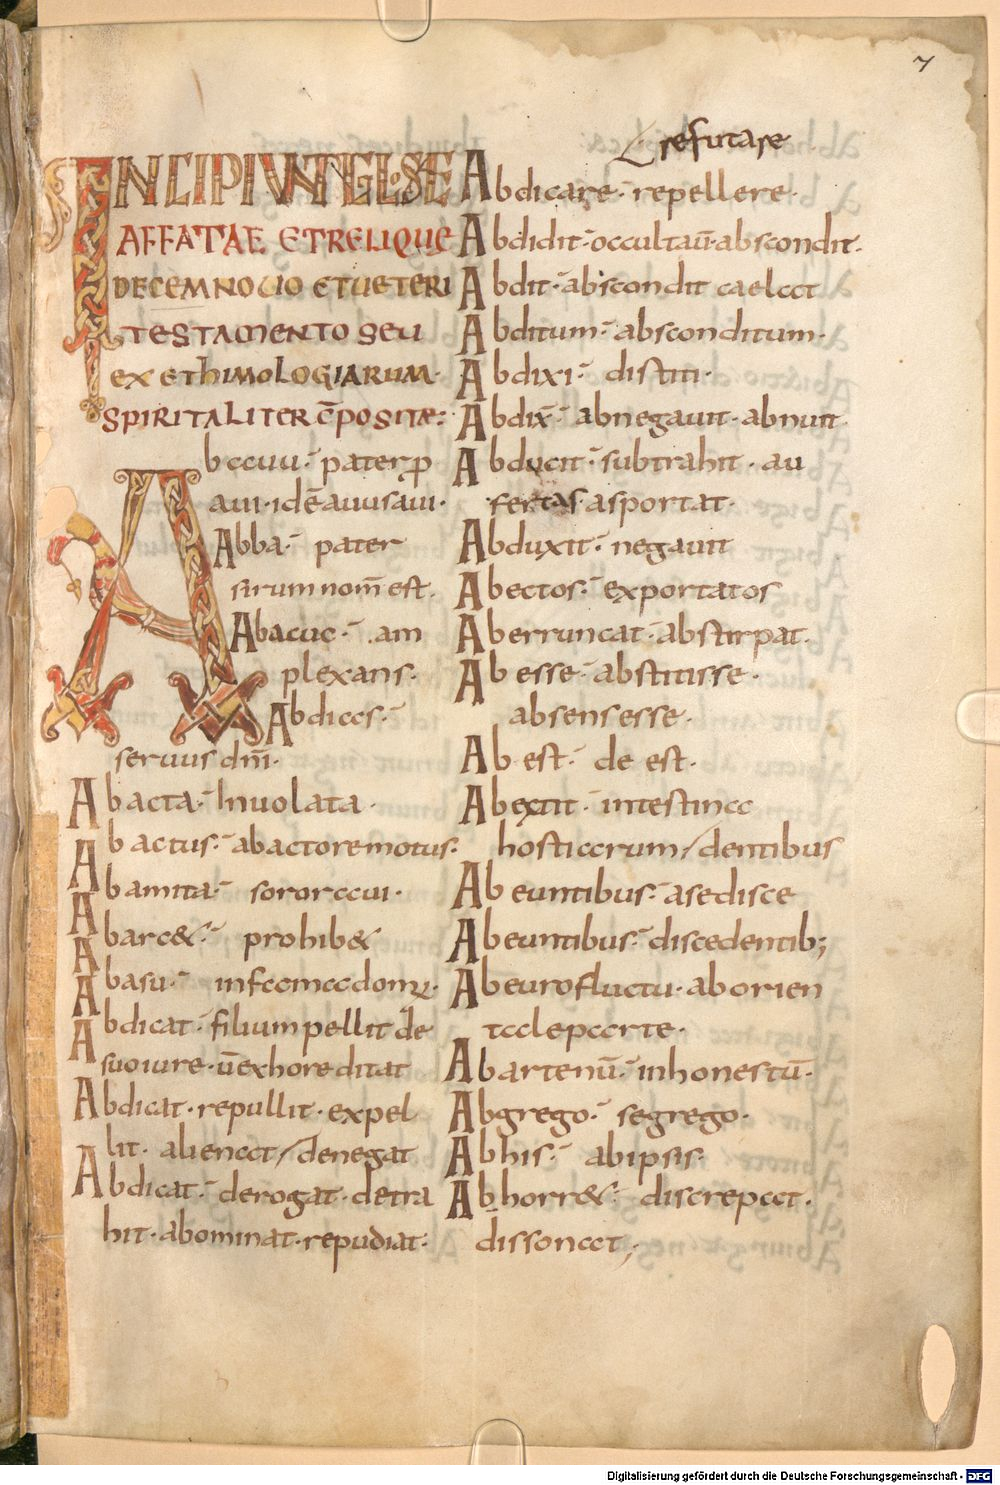 7
INCIPIUNT GLOSE
AFFATAE ET RELIQUE
DECEM NOUO ET UETERI
TESTAMENTO SEU
EX ETHIMOLOGIARUM·
SPIRITALITER CŌPOSITÆ:
Abavu· pater p̱
aui· idē auus aui·
Abba· pater
sirum nom̄ est·
Abacuc· am
plexans·
Abdias·
seruus dn̄i·
Abacta· Inuolata·
Abactus· ab actore motus·
Abamita· soror aui·
Abarc&· prohib&
Abasu· infama domꝰ·
Abdicat· filium pellit de
suo iure· ūł exhoreditat
Abdicat· repullit· expel
lit· alienat/denegat
Abdicat· derogat· detra
hit· abominat· repudiat·
refutare
Abdicare· repellere·
Abdidit· occultau̅· abscondit·
Abdit· abscondit caelat
Abditum· absconditum·
Abdixi· distiti·
Abdix̄· abnegauit· abnuit·
Abducit· subtrahit· au
fertas· asportat·
Abduxit· negauit
Abectos· exportatos
Aberruncat· abstirpat·
Ab esse· abstitisse·
absens esse·
Ab est· de est·
Abextit· intestina
hostiarum/dentibus
Ab euntibus· asedisce
Abeuntibus· discedentib;
Abeurofluctu· ab orien
tcclepccrte·
Abartenū· inhonestū·
Abgrego· segrego·
Abhis· abipsis·
Abhorr&· discrepat·
dissonat;
Digitalisierung gefördert durch die Deutsche Forschungsgemeinschaft - DFG